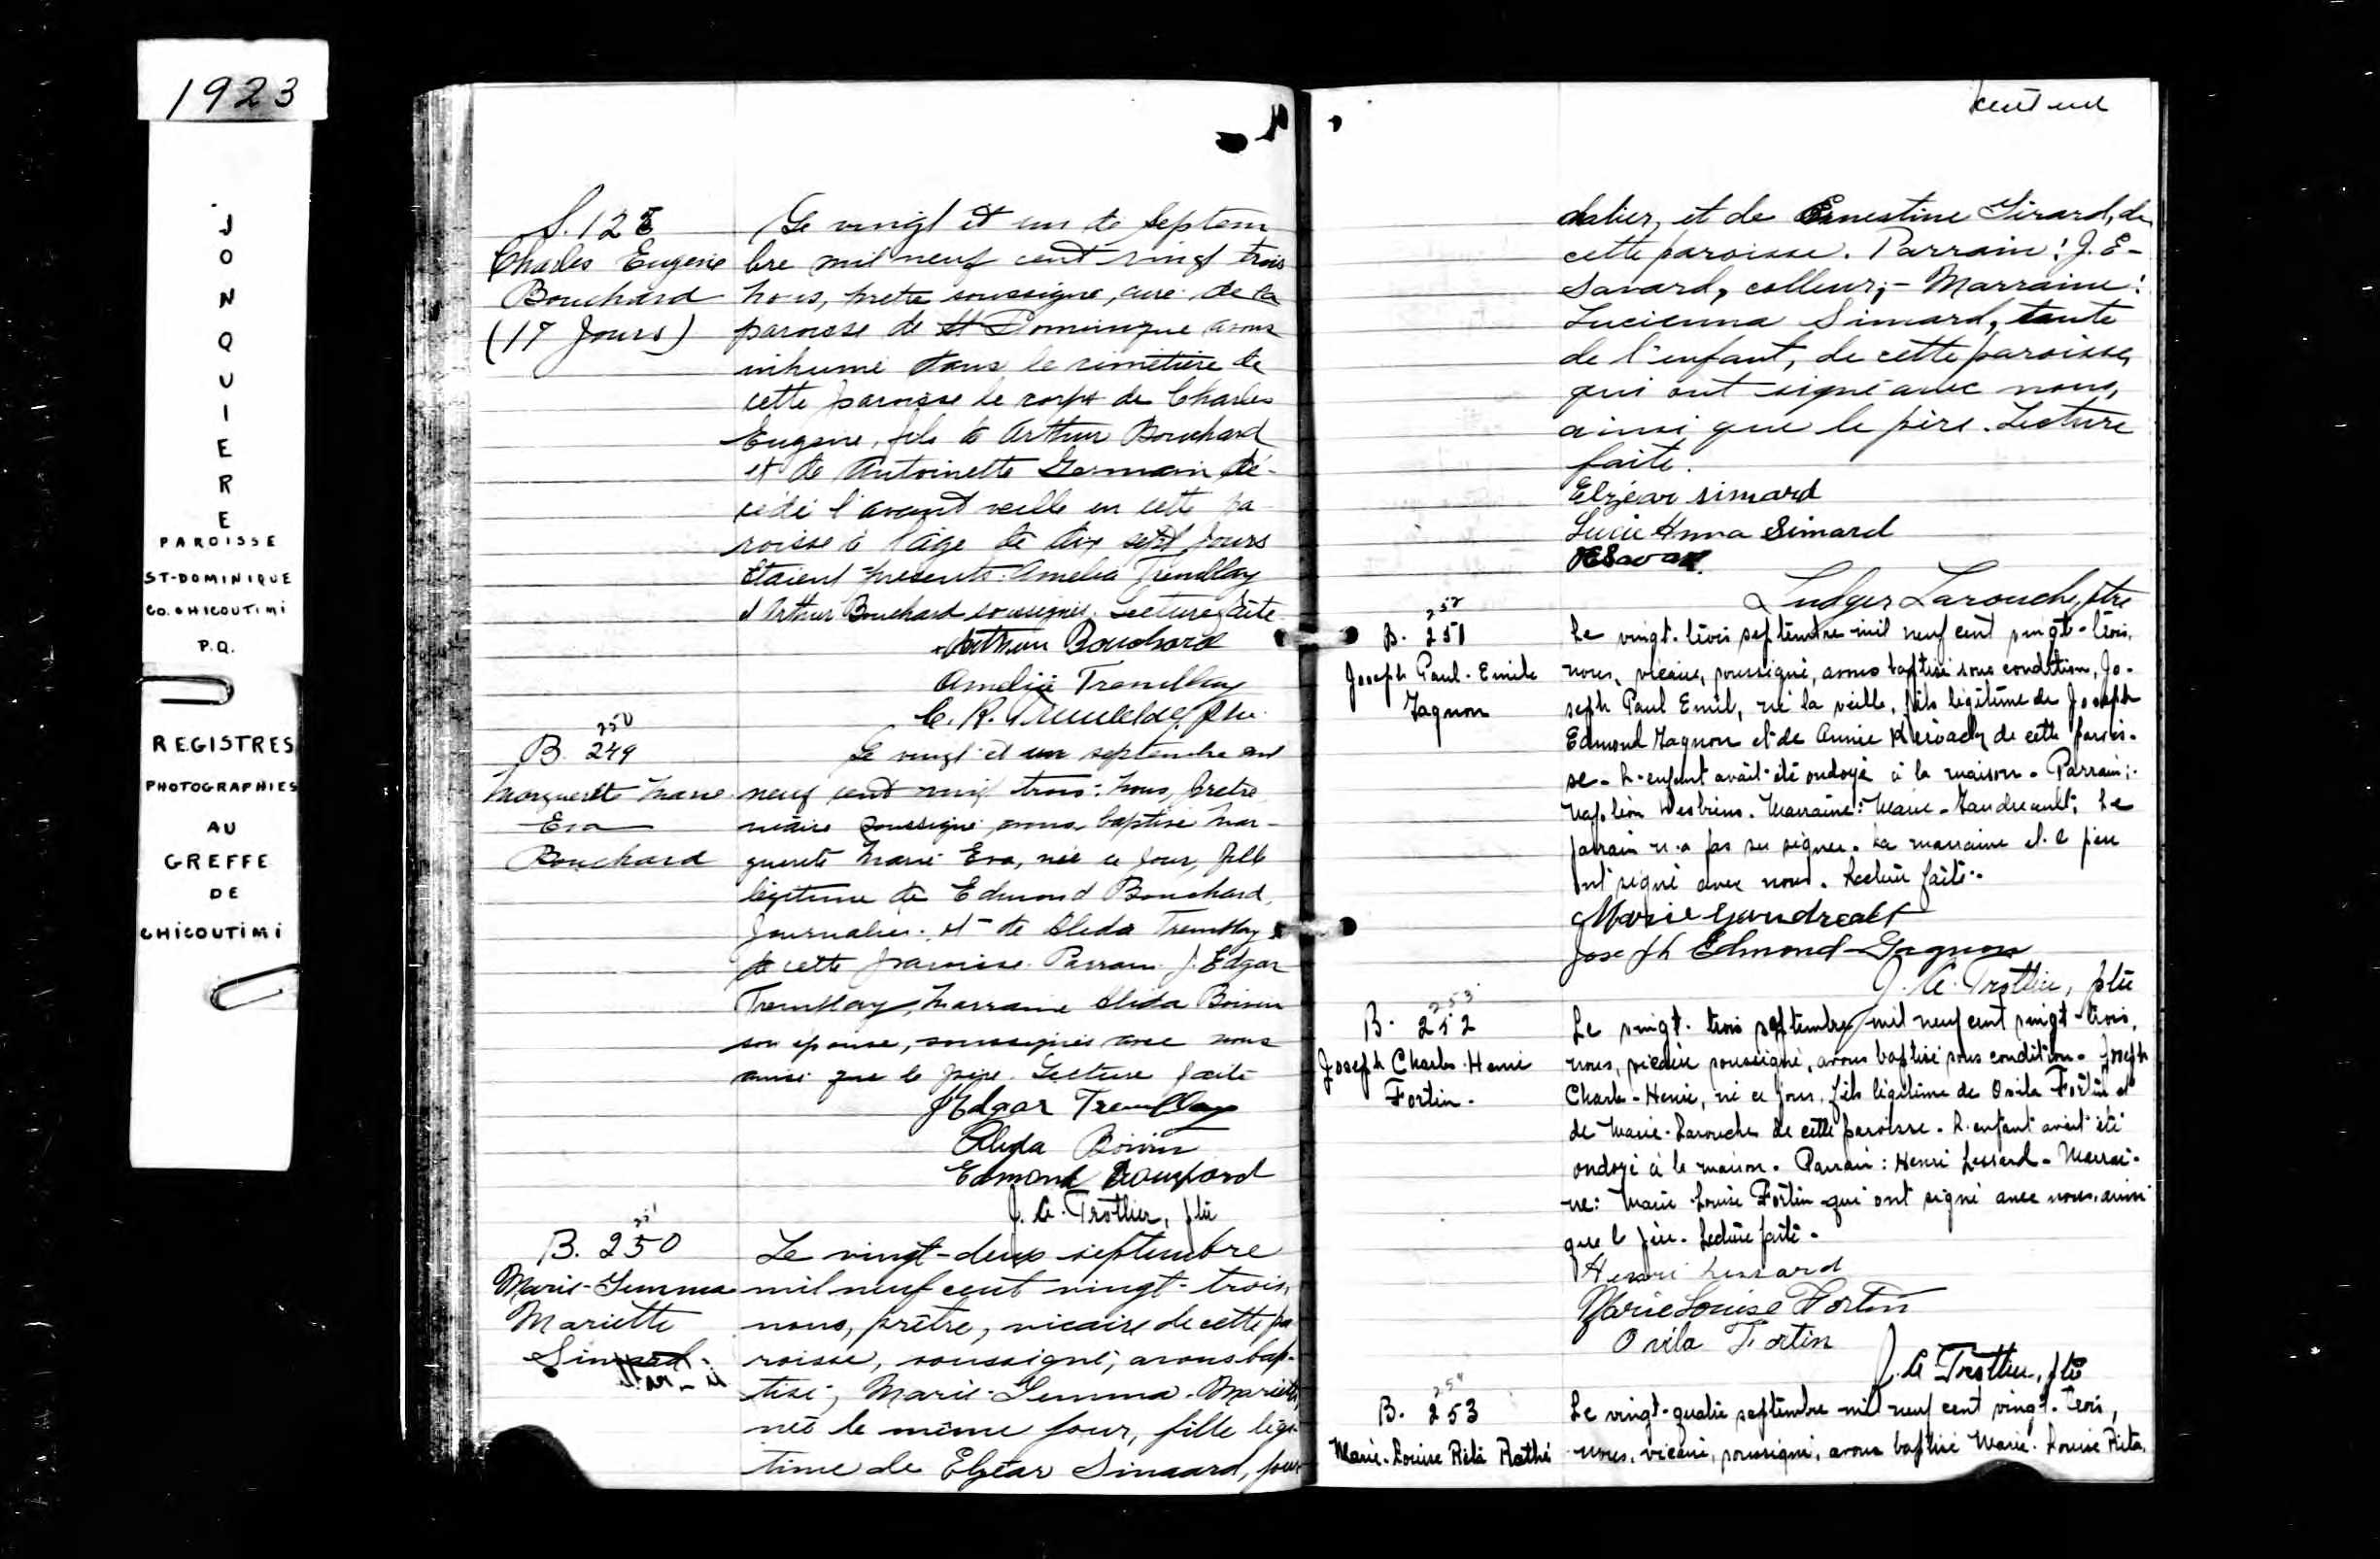 1923
JONQUIERE
PAROISSE
ST-DOMINIQUE
CO. CHICOUTIMI
P.Q.
REGISTRES
PHOTOGRAPHIES
AU
GREFFE
DE
CHICOUTIMI
S. 12
Charles Eugene
Bouchard
(17 Jours)
Le vingt et un de Septem
bre mil neuf cent vingt trois
nous, pretre soussigne, cure de la
paroisse de St Dominique avons
inhumé dans le cimetière de
cette paroisse le corps de Charles
Eugene, fils de Arthur Bouchard
et de Antoinette Germain dé-
cédé l'avant veille en cette pa
roisse à l'âge de dix sept jours
Etaient presents: Amelia Tremblay
et Arthur Bouchard soussignés. Lecture faite
Arthur Bouchard
Amelia Tremblay
C. R. Tremblay ptre.
250
B. 249
Marguerite Marie
Eva
Bouchard
Le vingt et un septembre mil
neuf cent vingt trois: nous, pretre
vicaire soussigné avons baptise Mar-
guerite Marie Eva, née ce jour, fille
legitime de Edmond Bouchard,
Journalier, et de Alida Tremblay
de cette paroisse. Parrain J. Edgar
Tremblay, Marraine Alida Boivin
son épouse, soussignés avec nous
ainsi que le père. Lecture faite
J Edgar Tremblay
Alida Boivin
Edmond Bouchard
J. A. Trottier, ptre
251
B. 250
Marie-Gemma
Mariette
Simard.
Le vingt-deux septembre
mil neuf cent vingt-trois,
nous, prêtre, vicaire de cette pa
roisse, soussigné, avons bap-
tisé, Marie-Gemma-Mariette,
née le même jour, fille légi-
time de Elzéar Simard, jour
cent un
dalier, et de Ernestine Girard, de
cette paroisse. Parrain: J. E-
Savard, colleur;- Marraine:
Lucienna Simard, tante
de l'enfant, de cette paroisse,
qui ont signé avec nous,
ainsi que le père. Lecture
faite.
Elzéar Simard
Lucie Anna Simard
Ludger Larouche, ptre
252
B. 251
Joseph Paul-Emile
Gagnon
Le vingt-trois septembre mil neuf cent vingt-trois,
nous, vicaire, soussigné, avons baptisé sous condition, Jo-
seph Paul Emil, né la veille, fils légitime de Joseph
Edmond Gagnon et de Annie Kérouack de cette parois-
se. L'enfant avait été ondoyé à la maison. Parrain:
Napoléon Desbiens. Marraine: Marie-Gaudreault; Le
parrain n'a pas su signer. La marraine et le père
ont signé avec nous. Lecture faite.
Marie Gaudreault
Joseph Edmond Gagnon
J. A. Trottier, ptre
253
B. 252
Joseph Charles-Henri
Fortin.
Le vingt-trois septembre mil neuf cent vingt-trois,
nous, vicaire soussigné, avons baptisé sous condition. Joseph
Charles-Henri, né ce jour, fils légitime de Ovila Fortin et
de Marie-Larouche de cette paroisse. L'enfant avait été
ondoyé à la maison. Parrain: Henri Lessard. Marrai-
ne: Marie Louise Fortin qui ont signé avec nous, ainsi
que le père. Lecture faite.
Henri Lessard
Marie Louise Fortin
Ovila Fortin
J. A Trottier, ptre
254
B. 253
Marie-Louise Rita Rathé
Le vingt-quatre septembre mil neuf cent vingt-trois,
nous, vicaire, soussigné, avons baptisé Marie-Louise Rita,